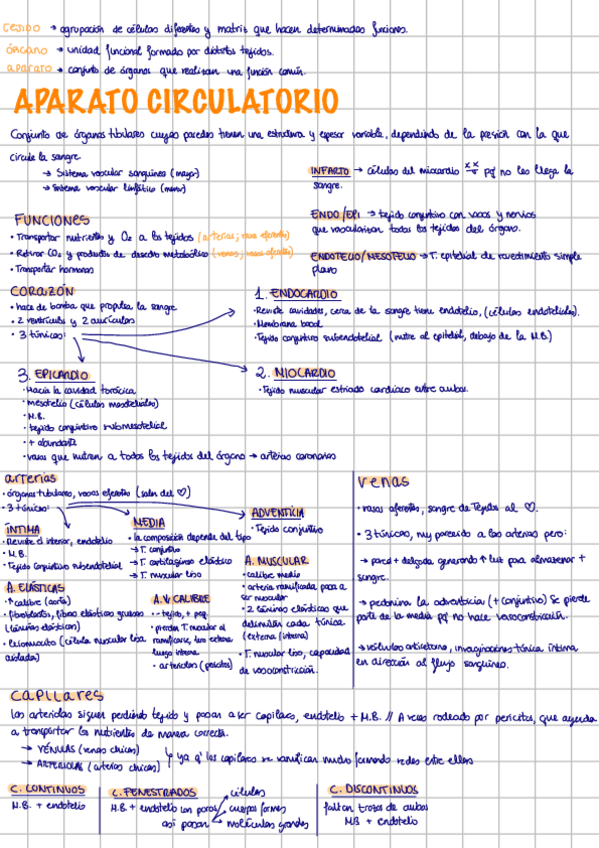 TEJIDO → agrupación de células diferentes y matriz que hacen determinadas funciones.
ÓRGANO → unidad funcional formado por distintos tejidos.
APARATO → conjunto de órganos que realizan una función común.
APARATO CIRCULATORIO
Conjunto de órganos tubulares cuyas paredes tienen una estructura y espesor variable, dependiendo de la presión con la que
circule la sangre
→ Sistema vascular sanguíneo (mayor)
→ Sistema vascular linfático (menor)
INFARTO → células del miocardio xx pq no les llega la
sangre.
ENDO/EPI → tejido conjuntivo con vasos y nervios
que vascularizan todos los tejidos del órgano.
ENDOTELIO/MESOTELIO → T. epitelial de revestimiento simple
plano
FUNCIONES
• Transportar nutrientes y O2 a los tejidos (arterias, vasos eferentes)
• Retirar CO2 y productos de desecho metabólico (venas, vasos aferentes)
• Transportar hormonas
CORAZÓN
• hace de bomba que propulsa la sangre
• 2 ventrículos y 2 aurículas
• 3 túnicas:
1. ENDOCARDIO
• Reviste cavidades, cerca de la sangre tiene endotelio, (células endoteliales).
• Membrana basal
• Tejido conjuntivo subendotelial (nutre al epitelial, debajo de la M.B.)
2. MIOCARDIO
• Tejido muscular estriado cardiaco entre ambas.
3. EPICARDIO
• Hacia la cavidad torácica
• mesotelio (células mesoteliales)
• M.B.
• tejido conjuntivo submesotelial
• + abundante
• vasos que nutren a todos los tejidos del órgano → arterias coronarias
arterias
• órganos tubulares, vasos eferentes (salen del ♡)
• 3 túnicas:
ÍNTIMA
• Reviste el interior, endotelio
• M.B.
• Tejido conjuntivo subendotelial
MEDIA
• la composición depende del tipo
→ T. conjuntivo
→ T. cartilaginoso elástico
→ T. muscular liso
ADVENTICIA
• Tejido conjuntivo
A. ELÁSTICAS
• ↑ calibre (aorta)
• fibroblastos, fibras elásticas gruesas
(láminas elásticas)
• leiomiocito (célula muscular lisa
aislada)
A. ↓ CALIBRE
• - tejido, + peq.
• pierden T. muscular al
ramificarse, las externa
luego interna
• arteriolas (pocitos)
A. MUSCULAR
• calibre medio
• arteria ramificada pasa a
ser muscular
• 2 láminas elásticas que
delimitan cada túnica
(externa / interna)
• T. muscular liso, capacidad
de vasoconstricción.
venas
• vasos aferentes, sangre de Tejidos al ♡.
• 3 túnicas, muy parecido a las arterias pero:
→ pared + delgada generando ↑ luz para almacenar +
sangre.
→ predomina la adventicia (+ conjuntivo) Se pierde
parte de la media pq no hace vasoconstricción.
→ válvulas antirretorno, invaginaciones túnica íntima
en dirección al flujo sanguíneo.
capilares
Las arteriolas siguen perdiendo tejido y pasan a ser capilares, endotelio + M.B. // A veces rodeado por pericitos, que ayudan
a transportar los nutrientes de manera correcta.
→ VÉNULAS (venas chicas)
→ ARTERIOLAS (arterias chicas)
ya q' los capilares se ramifican mucho formando redes entre ellos
C. CONTINUOS
M.B. + endotelio
C. FENESTRADOS
M.B. + endotelio con poros
así pasan
células
cuerpos formes
moléculas grandes
C. DISCONTINUOS
faltan trozos de ambas
MB + endotelio